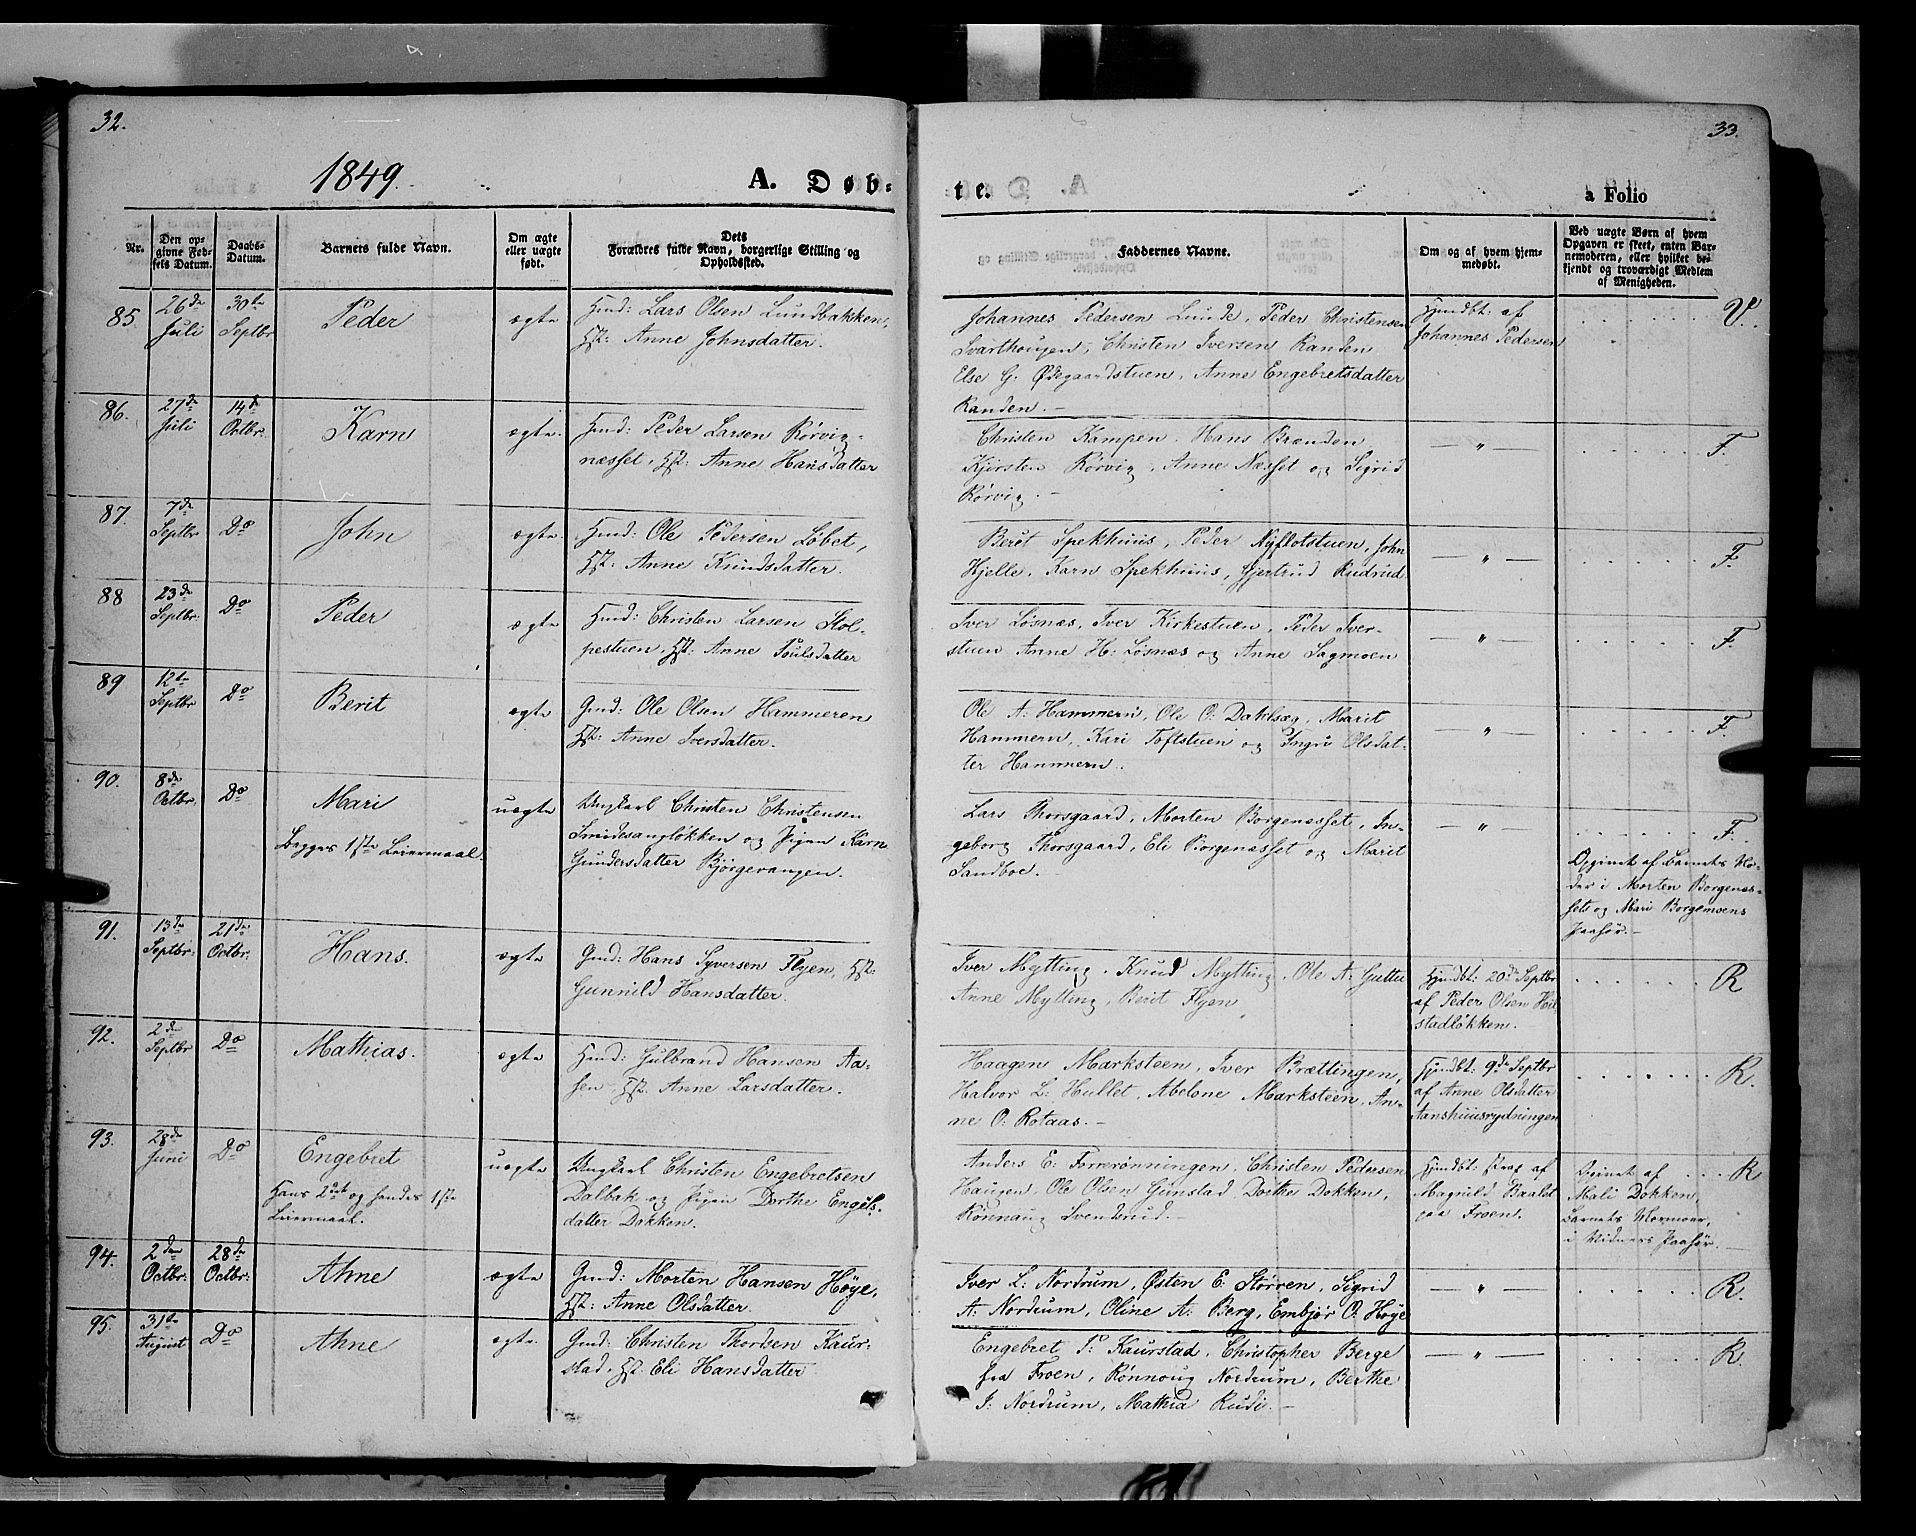 32.
33.
1849.
A. Døb-
te.
a Folio
Nr.
Den op-
givne Fød-
sels Datum.
Daabs-
Datum.
Barnets fulde Navn.
Om ægte
eller uægte
født.
Dets
Forældres fulde Navn, borgerlige Stilling og
Opholdssted.
Faddernes Navne.
Om og af hvem hjem-
medøbt.
Ved uægte Børn af hvem
Opgaven er skeet, enten Bar-
nemoderen, eller hvilket be-
kjendt og troværdigt Medlem
af Menigheden.
85
26de
Juli
30te
Septbr
Peder
ægte
Hmd: Lars Olsen Lundbakken,
Hst: Anne Johnsdatter.
Johannes Pedersen Lunde, Peder Christensen
Svarthougen, Christen Iversen Randen
Else G. Ødegaardstuen, Anne Engebretsdatter
Randen.
Hjmdbt: af
Johannes Pedersen
V.
86.
27de
Juli
14de
Octbr.
Karn
ægte.
Hmd: Peder Larsen Rørvig-
næsset, Hst: Anne Hansdatter
Christen Kampen. Hans Brænden
Kjersten Rørvig, Anne Næsset og Sigrid
Rørvig.
— " —
F.
87.
7de
Septbr
Do
John
ægte.
Hmd: Ole Pedersen Løbet,
Hst: Anne Knudsdatter.
Berit Spekhuus, Peder Nyflotstuen, John
Hjelle, Karn Spekhuus, Gjertrud Rudrud.
— " —
F.
88
23de
Septbr:
Do
Peder
ægte
Hmd: Christen Larsen Stol-
pestuen, Hst: Anne Poulsdatter
Iver Løsnæs, Iver Kirkestuen, Peder Iver-
stuen Anne H: Løsnæs og Anne Sagmoen
— " —
F.
89
12te
Septbr
Do
Berit
ægte
Gmd: Ole Olsen Hammeren
Hst: Anne Iversdatter.
Ole A: Hammern, Ole O: Dahlsæg, Marit
Hammern, Kari Toftstuen og Ingri Olsdat-
ter Hammern.
— " —
F.
90.
8de
Octbr.
Do
Mari
Begges 1ste Leiermaal.
uægte
Ungkarl Christen Christensen
Smidesangløkken og Pigen Karn
Gundersdatter Bjørgevangen.
Lars Thorsgaard, Morten Borgenæsset, In-
geborg Thorsgaard, Eli Borgenæsset og Marit
Sandboe.
— " —
F.
Opgivet af Barnets Mo-
der i Morten Borgenæs-
sets og Mari Borgemoens
Paahør.—
91.
13de
Septbr:
21de
Octbr:
Hans.
ægte
Gmd: Hans Syversen Flyen, Hst:
Gunnild Hansdatter.
Iver Mytting, Knud Mytting, Ole A. Guttu
Anne Mytting, Berit Flyen
Hjmdbt: 20de Septbr
af Peder Olsen Hol-
stadløkken.
R
92.
2den
Septbr
Do
Mathias.
ægte
Hmd: Gulbrand Hansen Aa-
sen Hst. Anne Larsdatter.
Haagen Marksteen, Iver Brættingen,
Halvor L: Hullet, Abelone Marksteen, An-
ne O: Rotaas.—
Hjmdbt: 9de Septbr
af Anne Olsdatter
Aanshuusrydningen
R.
93.
28de
Juni
Do
Engebret
Hans 2det og hendes 1ste
Leiermaal.
uægte
Ungkarl Christen Engebretsen
Dalbak og Pigen Dorthe Engels-
datter Dokken.
Anders E: Forrerønningen, Christen Pedersen
Haugen, Ole Olsen Gunstad, Dorthe Dokken,
Rønnaug Svendsrud.—
Hjmdbt: strax af
Magnild Baalst
paa Froen.
Opgivet af
Mali Dokken,
Barnets Mormoer,
i Vidners Paahør.
R
94.
2den
Octbr:
28de
Octbr:
Ahne
ægte
Gmd: Morten Hansen Høye,
Hst: Anne Olsdatter.
Iver L: Nordrum, Østen E: Storven, Sigrid
A: Nordrum, Oline A: Berg, Embjør O. Høye
— " —
R.
95.
31te
August
Do
Ahne
ægte.
Gmd: Christen Thordsen Kaur-
stad Hst Eli Hansdatter
Engebret P: Kaurstad, Christopher Berge
fra Froen, Rønnoug Nordrum, Berthe
I: Nordrum, Mathia Rudi.—
— " —
R.